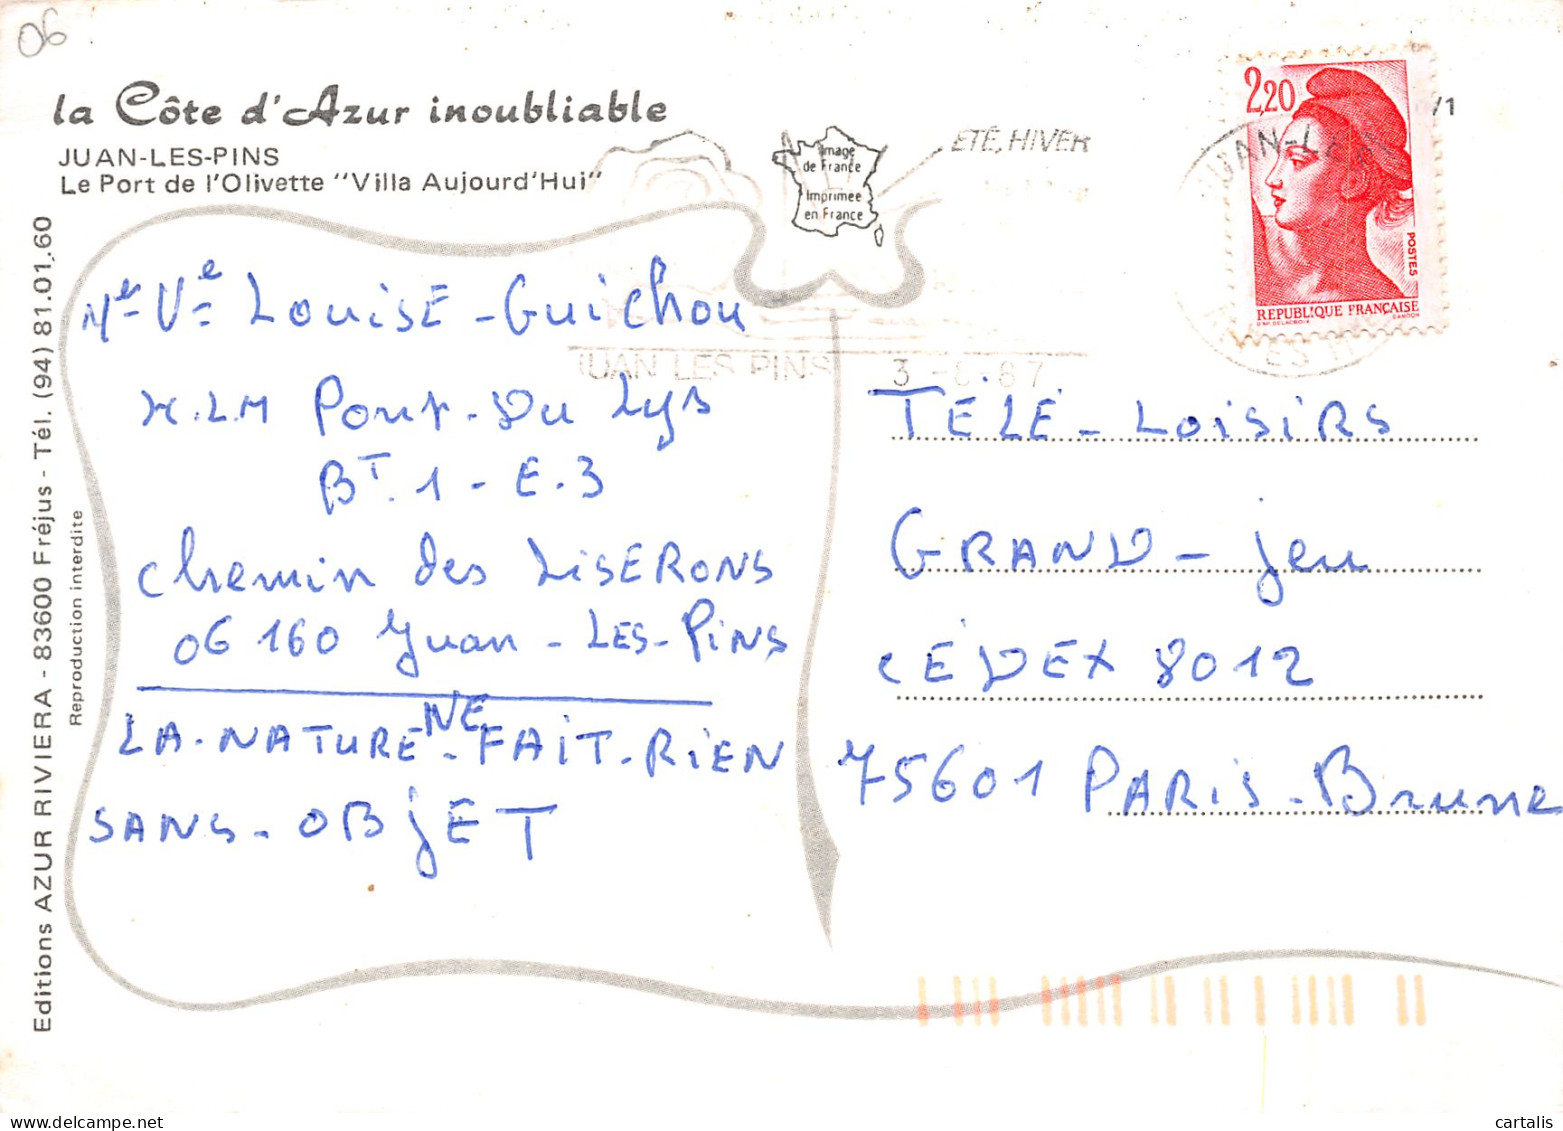 06
la Côte d'Azur inoubliable
JUAN-LES-PINS
Le Port de l'Olivette "Villa Aujourd'Hui"
Image
de France
Imprimée
en France
ÉTÉ, HIVER
JUAN LES PINS
2,20
POSTES
REPUBLIQUE FRANÇAISE
/1
Editions AZUR RIVIERA - 83600 Fréjus - Tél. (94) 81.01.60
Reproduction interdite
Me Ve Louise - Guichou
H.L.M Pont-Du Lys
BT. 1 - E.3
Chemin des LISERONS
06 160 Juan - LES - PiNS
LA-NATURE NE - FAiT-RiEN
SANS - OBjET
TÉLÉ - LoisiRs
GRAND - Jeu
CÉDEX 8012
75601 PARis - Brune
cartalis